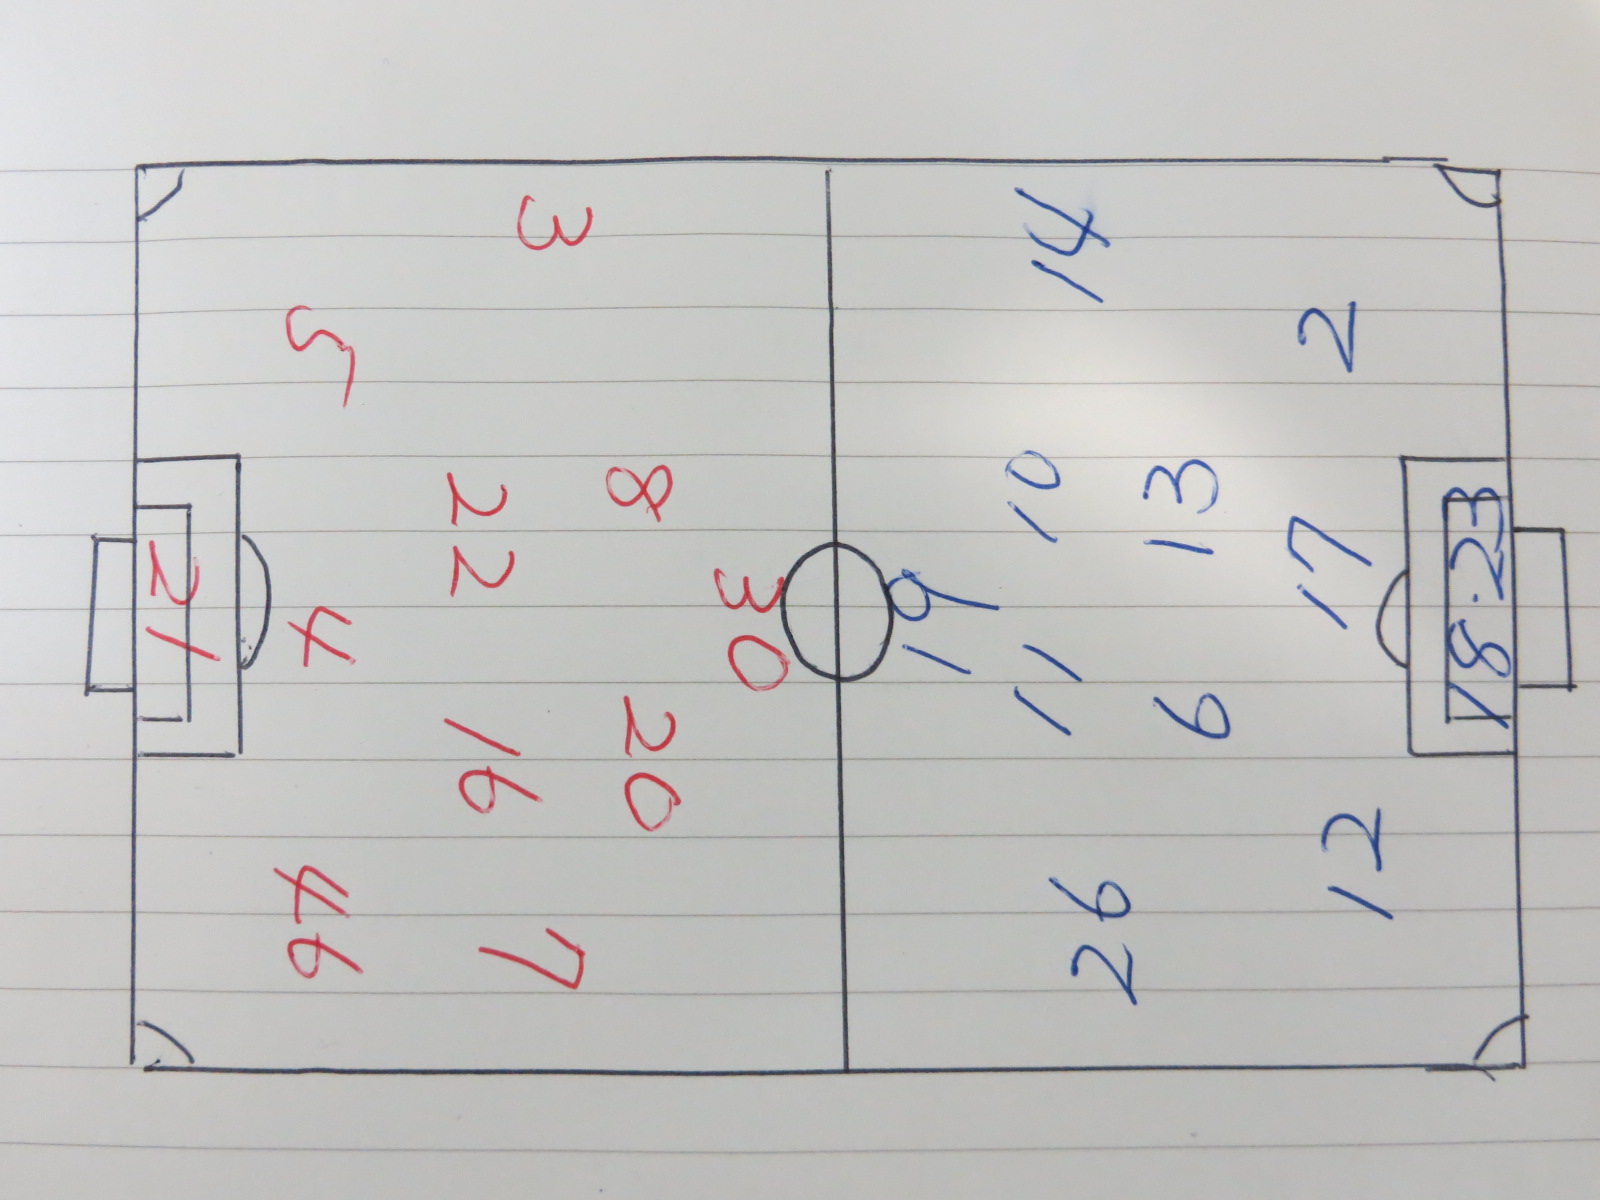 3
5
8
22
30
4
21
20
16
46
7
14
2
10
13
17
18.23
19
11
6
12
26